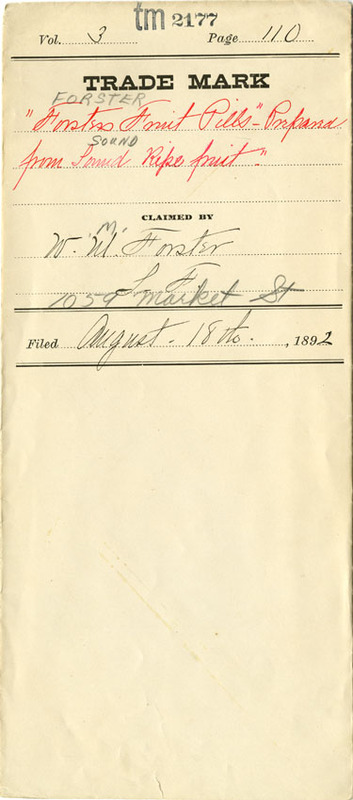 tm 2177
Vol. 3 Page 110
TRADE MARK
FORSTER
"Forsters Fruit Pills"-Prepared
SOUND
from Sound Ripe fruit."
CLAIMED BY
M
W. "M" Forster
S. F.
1059 Market St
Filed August. 18th. , 1892